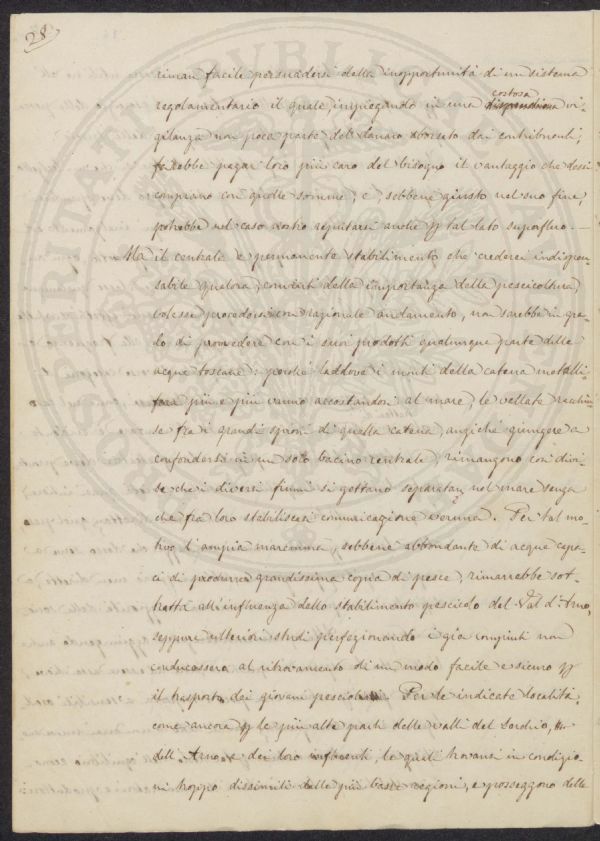 28
riman facile persuadersi della inopportunità di un sistema
costosa
regolamentario il quale, impiegando in una dispendiosa vi-
gilanza non poca parte del danaro sborsato dai contribuenti,
farebbe pagar loro più caro del bisogno il vantaggio che dessi
comprano con quelle somme; e, sebbene giusto nel suo fine,
potrebbe nel caso nostro reputarsi anche p tal lato superfluo. —
Ma il centrale e permanente stabilimento che crederei indispen-
sabile qualora, convinti della importanza della pescicoltura,
volessi procedersi con razionale andamento, non sarebbe in gra-
do di provvedere con i suoi prodotti qualunque parte delle
acque toscane: perché laddove i monti della catena metalli-
fera più e più vanno accostandosi al mare, le vallate racchiu-
se fra i grandi sproni di quella catena, anziché giungere a
confondersi in un solo bacino centrale, rimangono così divi-
se che i diversi fiumi si gettano separatam nel mare senza
che fra loro stabiliscasi comunicazione veruna. Per tal mo-
tivo l'ampia maremma, sebbene abbondante di acque capa-
ci di produrre grandissima copia di pesce, rimarrebbe sot-
tratta all'influenza dello stabilimento pescicolo del Val d'Arno,
seppure ulteriori studi perfezionando i già compiuti non
conducessero al ritrovamento di un modo facile e sicuro p
il trasporto dei giovani pesciolini. Per le indicate località,
come ancora p le più alte parti delle valli del Serchio,
dell'Arno e dei loro influenti, le quali trovansi in condizio-
ni troppo dissimili dalle più basse regioni, e posseggono delle